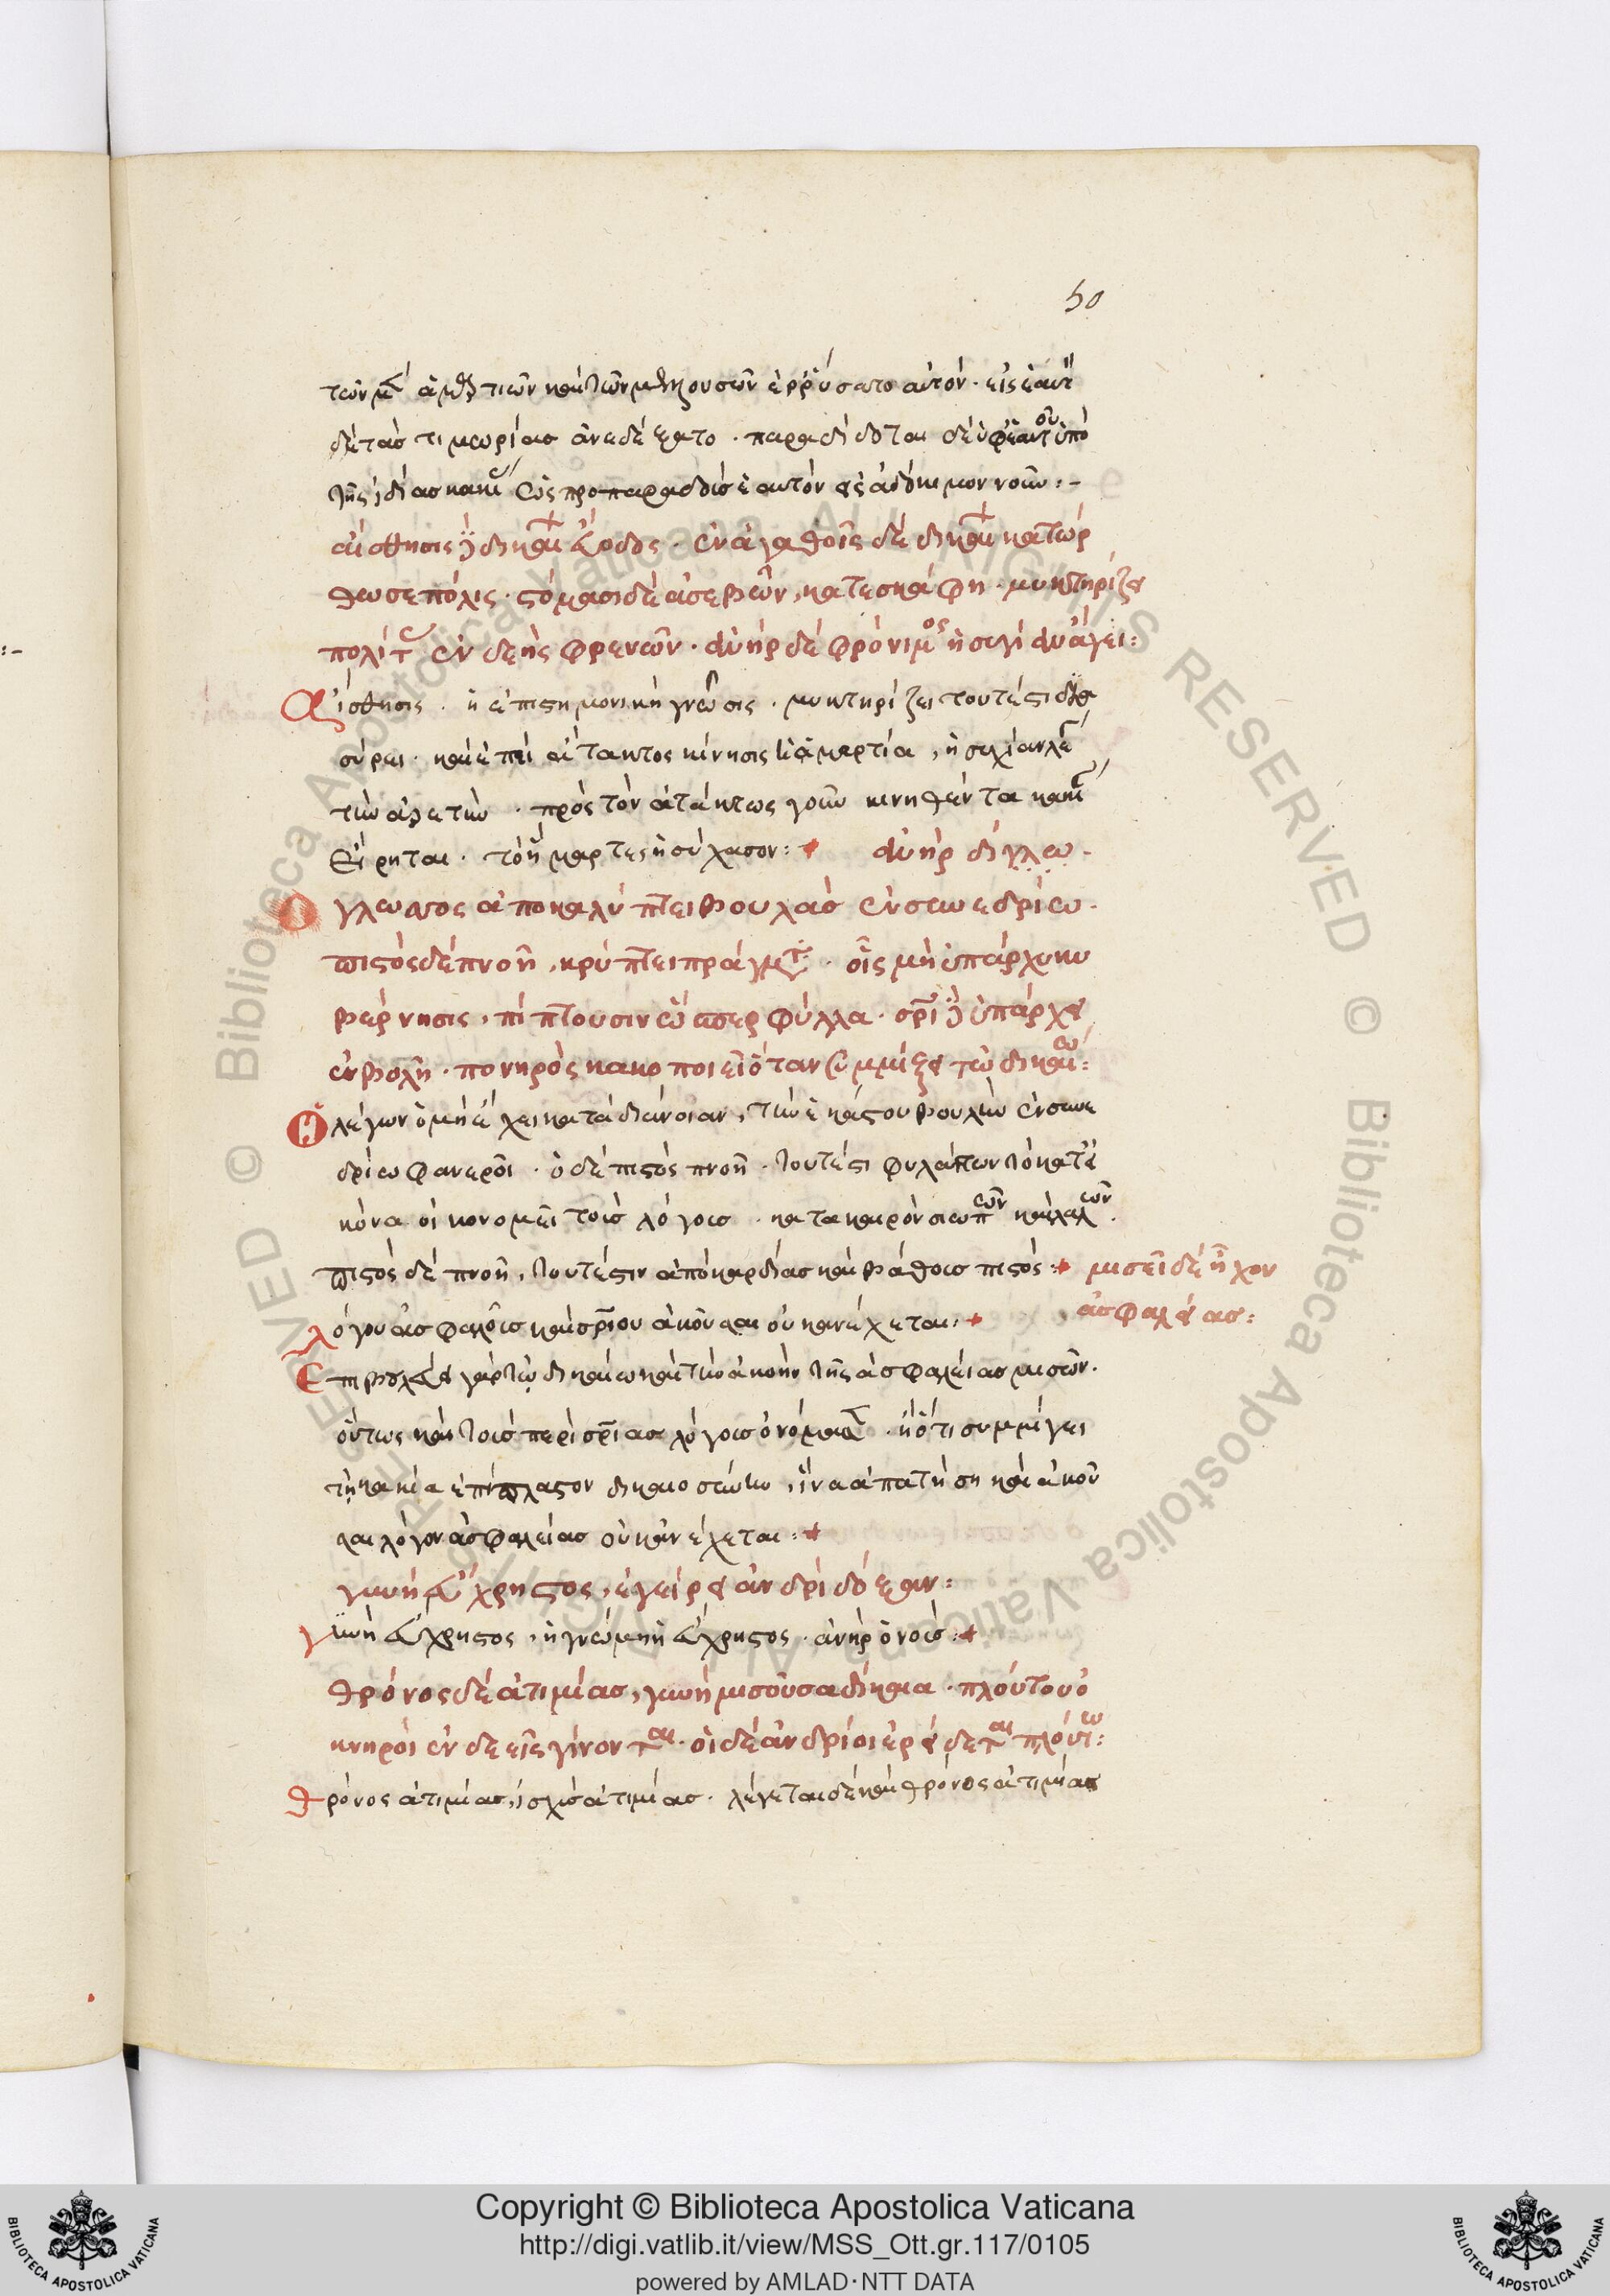 50
τῶν μ(ὲν) ἁμαρτιῶν καὶ τῶν μελλουσῶν ἐρρύσατο αὐτόν· εἰς ἑαυτ(ὸν)
δὲ τὰς τιμωρίας ἀνεδέξατο· παραδίδοται δὲ ὑφ' ἑαυτοῦ ὑπὸ
τῆς ἰδίας κακί(ας) ὡς προπαραδοὺς ἑαυτὸν εἰς ἀδόκιμον νοῦν:-
αἴσθησις δικαί εὔοδος· ἐν ἀγαθοῖς δὲ δικαί κατώρ
θωσε πόλις· στόμασι δὲ ἀσεβῶν, κατεσκάφη· μυκτηρίζει
πολίτ(ας) ἐνδεὴς φρενῶν· ἀνὴρ δὲ φρόνιμος ἡσυχίαν ἄγει:
Αἴσθησις· ἡ ἐπιστημονικὴ γνῶσις· μυκτηρίζει τουτέστι δια
σύρει· καὶ ἐπεὶ ἄτακτος κίνησις ἡ ἁμαρτία, ἡσυχίαν λέγ(ει)
τὴν ἀρετήν· πρὸς τὸν ἀτάκτως γοῦν κινηθέντα κακί(αν)
Εἴρηται· τὸ ἥμαρτες ἡσύχασον: + ἀνὴρ δίγλω-
γλωσσος ἀποκαλύπτει βουλὰς ἐν συνεδρίω-
πιστὸς δὲ πνοῆ, κρύπτει πράγματ(α)· οἷς μὴ ὑπάρχει κυ
βέρνησις, πίπτουσιν ὥσπερ φύλλα· σρία δὲ ὑπάρχει
ἐν βουλῆ· πονηρὸς κακοποιεῖ ὅταν συμμίξει τῶ δικαίω:
Ὁ λέγων ὃ μὴ ἔχει κατὰ διάνοιαν, τὴν ἑκάστου βουλὴν ἐν συνε
δρίω φανεροῖ· ὁ δὲ πιστὸς πνοῆ· τουτέστι φυλάττων τὸ κατ' εἰ
κόνα οἰκονομεῖ τοῖς λόγοις· κατὰ καιρὸν σιωπῶν καὶ λαλῶν·
πιστὸς δὲ πνοῆ, τουτέστιν ἀπὸ καρδίας καὶ βάθους πιστός: + μισεῖ δὲ ἦχον
ἀσφαλείας:
λόγου ἀσφαλοῦς καὶ σρίου ἀκοῦσαι οὐκ ἀνέχεται: +
Ἐπιβουλεύει γὰρ τῶ δικαίω καὶ τὴν ἀκοὴν τῆς ἀσφαλείας μισῶν·
οὕτως καὶ τοῖς περὶ σρίας λόγοις ὀνομά· ἢ ὅτι συμμίγει
τῇ κακία ἐπίπλαστον δικαιοσύνην, ἵνα ἀπατήση καὶ ἀκοῦ
σαι λόγον ἀσφαλείας οὐκ ἀνέχεται: +
γυνὴ εὐχρηστος, ἐγείρει ἀνδρὶ δόξαν:
γυνὴ εὔχρηστος, ἡ γνώμη ἡ εὔχρηστος· ἀνὴρ ὁ νοῦς: +
θρόνος δὲ ἀτιμίας, γυνὴ μισοῦσα δίκαια· πλούτου ὀ
κνηροὶ ἐνδεεῖς γίνονται· οἱ δὲ ἀνδρίοι ἐρείδεται πλούτω:
θρόνος ἀτιμίας, ἰσχὺς ἀτιμίας· λέγεται δὲ καὶ θρόνος ἀτιμίας
Copyright © Biblioteca Apostolica Vaticana
http://digi.vatlib.it/view/MSS_Ott.gr.117/0105
powered by AMLAD·NTT DATA
BIBLIOTECA APOSTOLICA VATICANA
BIBLIOTECA APOSTOLICA VATICANA